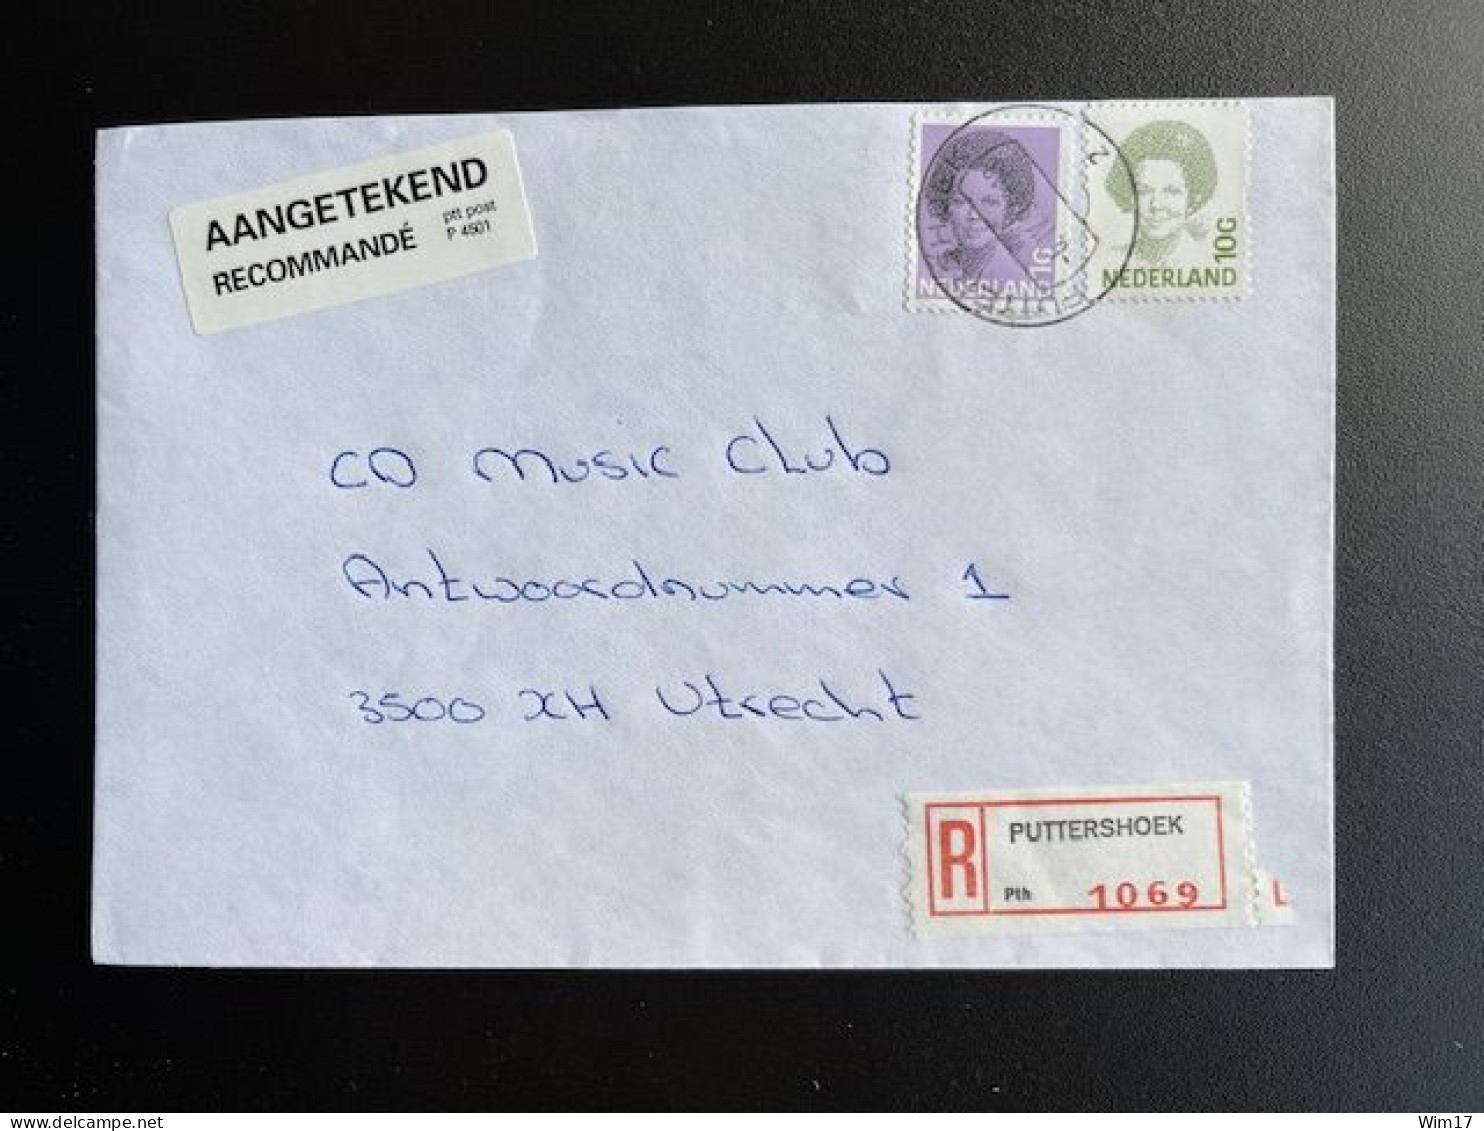 AANGETEKEND
RECOMMANDÉ
ptt post
P 4501
1G
NEDERLAND
10G
NEDERLAND
CD Music Club
Antwoordnummer 1
3500 XH Utrecht
R
PUTTERSHOEK
Pth
1069
Wim17